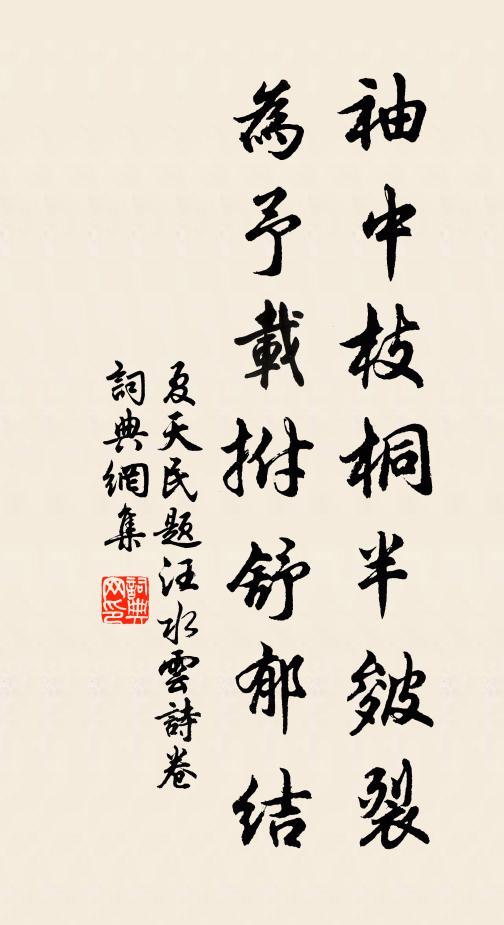 袖中枝桐半皴裂
為予載拊舒郁结
夏天民題汪水雲詩卷
詞典網集
詞典网印